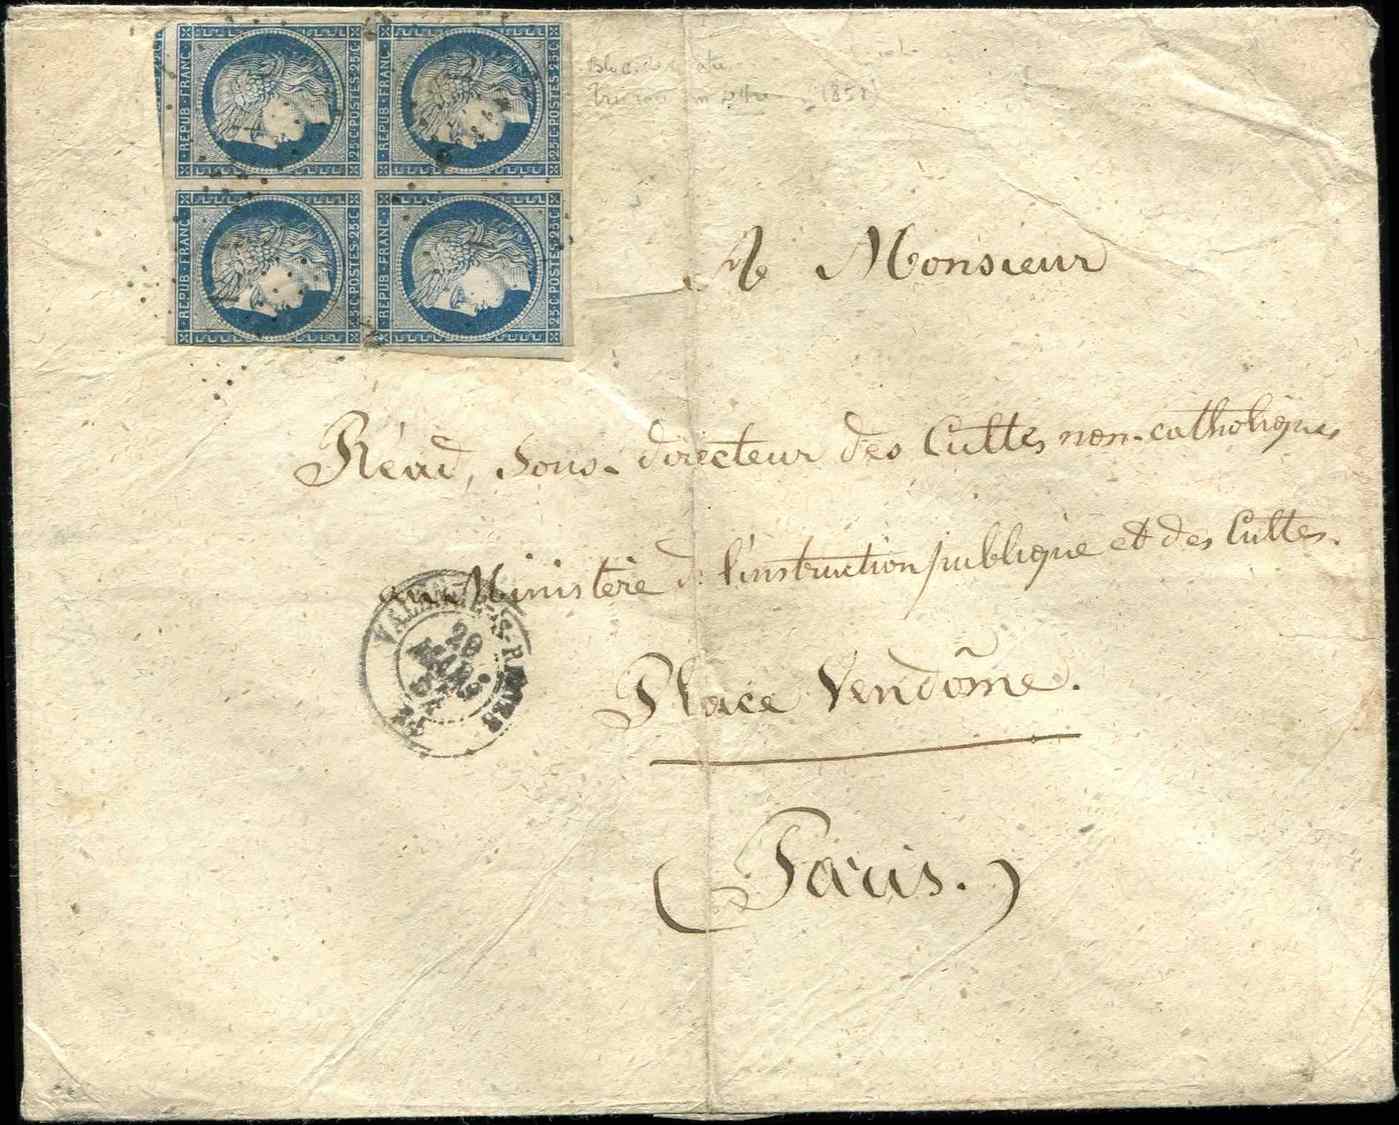 REPUB·FRANC· 25·C·POSTES·25·C·
REPUB·FRANC· 25·C·POSTES·25·C·
REPUB·FRANC· 25·C·POSTES·25·C·
REPUB·FRANC· 25·C·POSTES·25·C·
Bloc de
A Monsieur
Réad, Sous-directeur des Cultes non-catholiques
au Ministère de l'instruction publique et des Cultes.
Place Vendôme.
(Paris.)
29
MARS
54